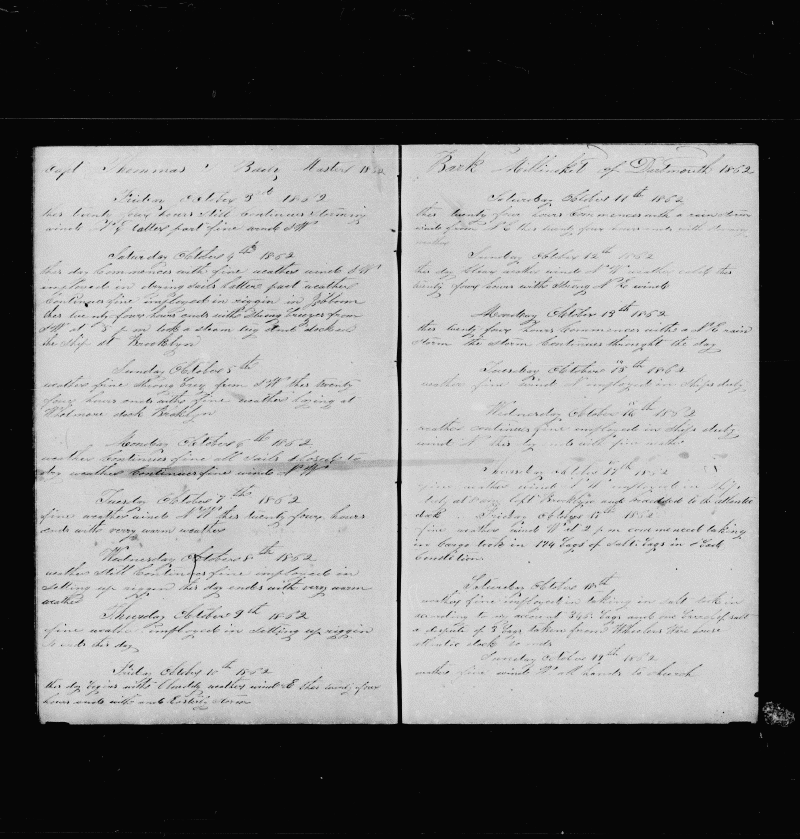 Capt Thommas Master 1862
Friday October 3rd 1862
this twenty four hours Still continues Storming
winds latter part fine winds S W
Saturday October 4th 1862
this day Commences with fine weather winds S W
imployed in drying Sails latter part weather
continues fine imployed in riggin in Jibboom
this twenty four hours ends with Strong breezes from
S W at 5 p m took a Steam tug and docked
the Ship at Brooklyn
Sunday October 5th
weather fine Strong from S W this twenty
four hours ends with fine weather laying at
dock Brooklyn
Monday October 6th 1862
weather Continues fine all Sails
day weather Continues fine winds N W
Tuesday October 7th 1862
fine weather winds N W this twenty four hours
ends with verry warm weather
Wednesday October 8th 1862
weather Still Continues fine imployed in
Setting up riggin this day ends with very warm
weather
Thursday October 9th 1862
fine imployed in Setting up riggin
So ends this day
Friday October 10th 1862
this day begins with Cloudy weather wind E this twenty four
hours ends with Easterly Storm
Bark of Dartmouth 1862
Saturday October 11th 1862
this twenty four hours Commences with a rain Storm
winds from N E this twenty four hours ends with
weather
Sunday October 12th 1862
this day weather winds N weather cold this
twenty four hours with Strong N E winds
Monday October 13th 1862
this twenty four hours Commences with a N E rain
Storm the Storm Continues throught the day
Tuesday October 15th 1862
weather fine wind N imployed in Ships duty
Wednesday October 16th 1862
weather continues fine imployed in Ships duty
wind N this day ends with fine
Thursday October 17th 1862
fine weather winds imployed in Ships
duty at left Brooklyn and to the atlantic
dock Friday October 17 1862
fine weather wind W at 2 p m commenced taking
in Cargo took in 174 bags of Salt bags in
Condition
Saturday October 18th
weather fine imployed in taking in salt took in
according to my account bags and
a dispute of 3 bags taken from Wheelers Store house
atlantic dock So ends
Sunday October 19th 1862
weather fine winds all hands to church